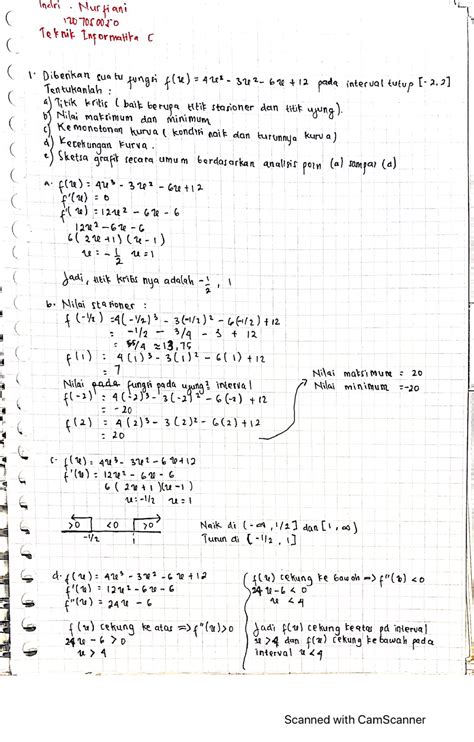 Indri . Nurfiani
1207050050
Teknik Informatika C
1. Diberikan suatu fungsi f(x) = 4x² - 3x² - 6x + 12 pada interval tutup [-2,2]
Tentukanlah :
a) Titik kritis (baik berupa titik stasioner dan titik ujung).
b) Nilai maksimum dan minimum
c) Kemonotonan kurva (kondisi naik dan turunnya kurva)
d) Kecekungan kurva.
e) Sketsa grafik secara umum berdasarkan analisis poin (a) sampai (d)
a. f(x) = 4x³ - 3x² - 6x + 12
f'(x) = 0
f'(x) = 12x² - 6x - 6
12x² - 6x - 6
6(2x+1)(x-1)
x = -1/2 x = 1
Jadi, titik kritis nya adalah -1/2, 1
b. Nilai stasioner :
f(-1/2) = 4(-1/2)³ - 3(-1/2)² - 6(-1/2) + 12
= -1/2 - 3/4 - 3 + 12
= 55/4 = 13,75
f(1) = 4(1)³ - 3(1)² - 6(1) + 12
= 7
Nilai pada fungsi pada ujung² interval
f(-2) = 4(-2)³ - 3(-2)² - 6(-2) + 12
= -20
f(2) = 4(2)³ - 3(2)² - 6(2) + 12
= 20
Nilai maksimum = 20
Nilai minimum = -20
c. f(x) = 4x³ - 3x² - 6x + 12
f'(x) = 12x² - 6x - 6
6(2x+1)(x-1)
x = -1/2 x = 1
>0 <0 >0
-1/2 1
Naik di (-∞, 1/2] dan [1, ∞)
Turun di [-1/2, 1]
d. f(x) = 4x³ - 3x² - 6x + 12
f'(x) = 12x² - 6x - 6
f"(x) = 24x - 6
f(x) cekung ke atas => f"(x) > 0
24x - 6 > 0
x > 4
f(x) cekung ke bawah => f"(x) < 0
24x - 6 < 0
x < 4
Jadi f(x) cekung keatas pd interval
x > 4 dan f(x) cekung kebawah pada
interval x < 4
Scanned with CamScanner